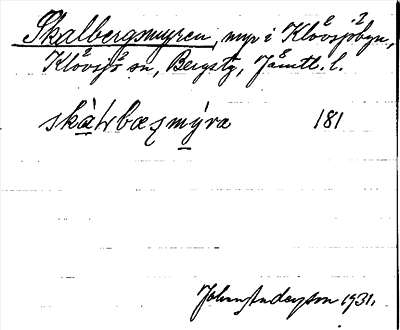 Skalbergsmyren, myr i Klövsjöbyn,
Klövsjö sn, Bergstg, Jämtl. l.
skàɫbæʒmýra 181
Johan Anderson 1931.